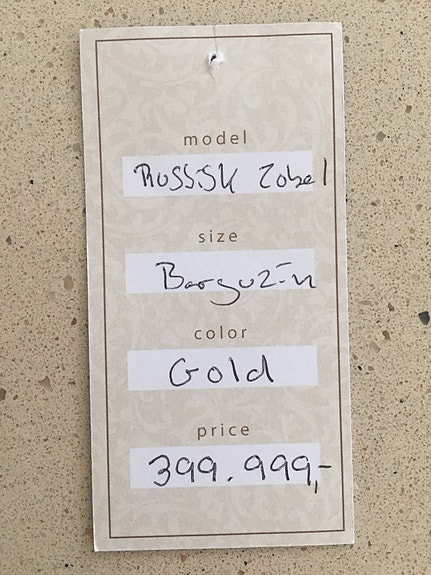 model
Russisk Zobel
size
Barguzin
color
Gold
price
399.999,-